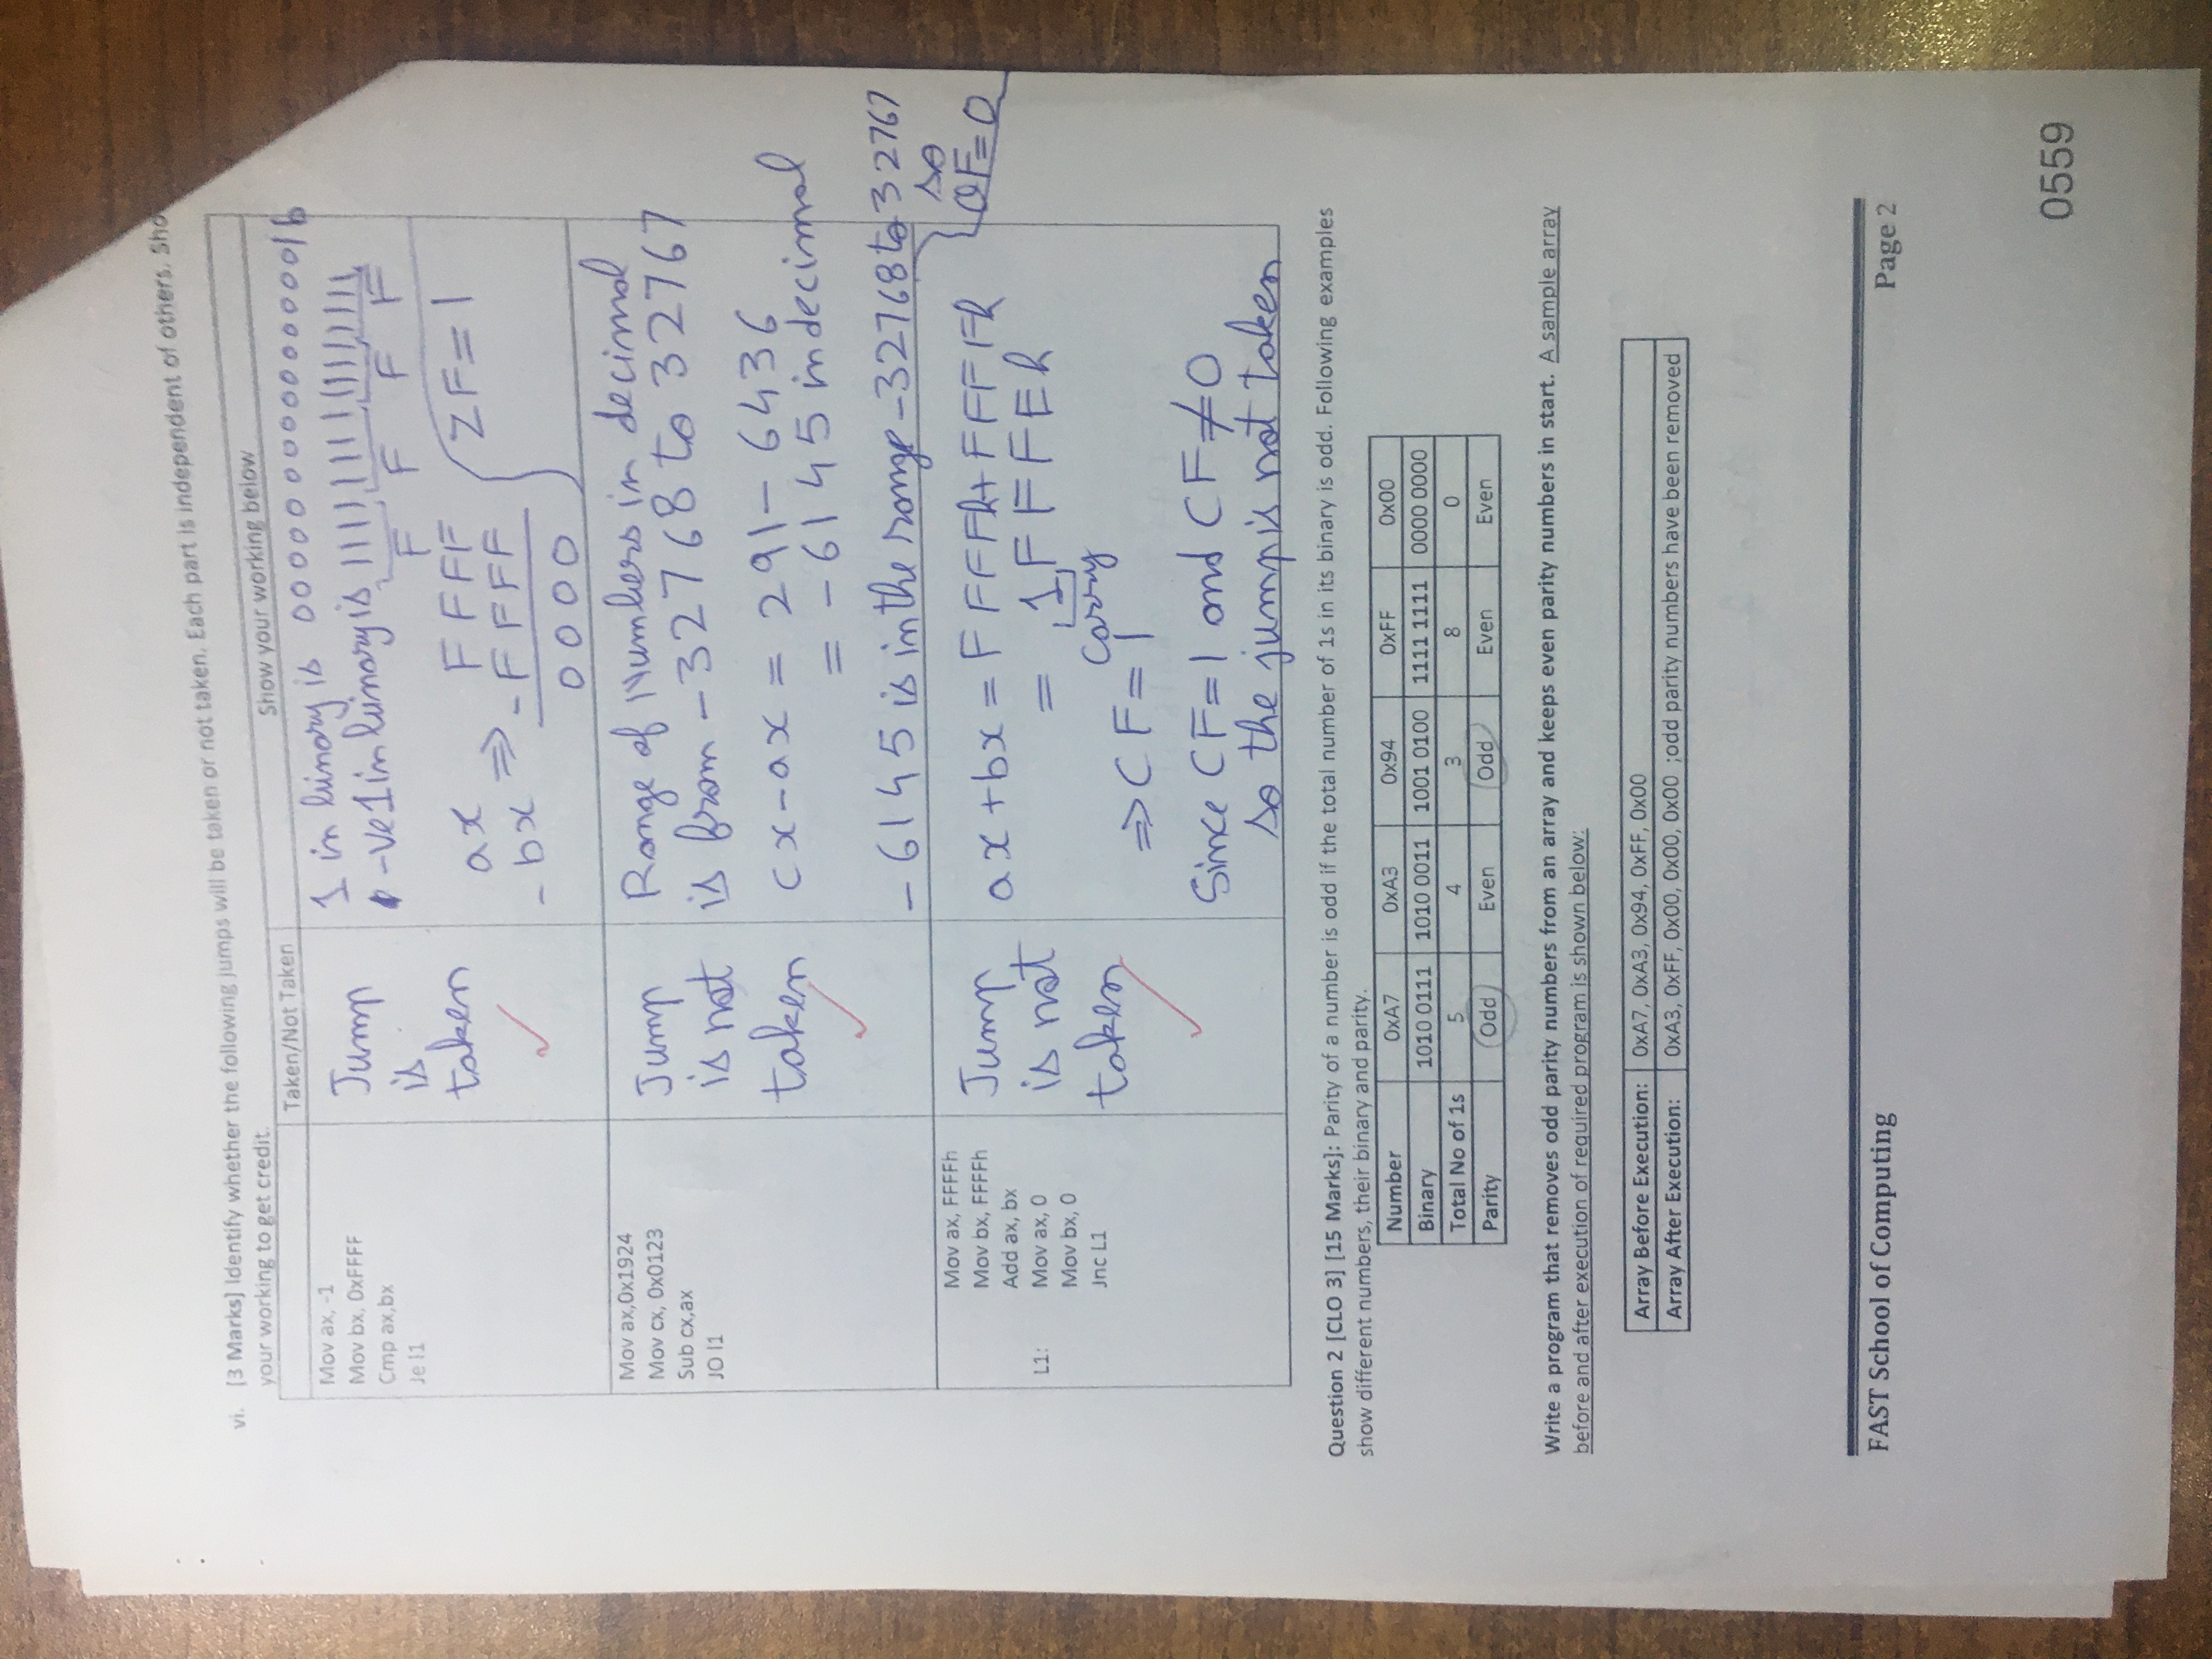 vi. [3 Marks] Identify whether the following jumps will be taken or not taken. Each part is independent of others. Sho
your working to get credit.
Taken/Not Taken
Show your working below
Mov ax, -1
Mov bx, 0xFFFF
Cmp ax,bx
Je l1
Jump
is
taken
1 in binary is 0000000000000001b
-ve1 in binary is 1111111111111111
F F F F
ax
- bx
⇒
F F F F
- F F F F
0 0 0 0
ZF=1
Mov ax,0x1924
Mov cx, 0x0123
Sub cx,ax
JO l1
Jump
is not
taken
Range of Numbers in decimal
is from -32768 to 32767
cx-ax = 291- 6436
= -6145 in decimal
-6145 is in the range -32768 to 32767
so
OF=0
Mov ax, FFFFh
Mov bx, FFFFh
Add ax, bx
L1: Mov ax, 0
Mov bx, 0
Jnc L1
Jump
is not
taken
ax +bx = F F F F h + F F F F h
= 1 F F F E h
Carry
⇒ CF=1
Since CF=1 and CF≠0
so the jump is not taken
Question 2 [CLO 3] [15 Marks]: Parity of a number is odd if the total number of 1s in its binary is odd. Following examples
show different numbers, their binary and parity.
Number 0xA7 0xA3 0x94 0xFF 0x00
Binary 1010 0111 1010 0011 1001 0100 1111 1111 0000 0000
Total No of 1s 5 4 3 8 0
Parity Odd Even Odd Even Even
Write a program that removes odd parity numbers from an array and keeps even parity numbers in start. A sample array
before and after execution of required program is shown below:
Array Before Execution: 0xA7, 0xA3, 0x94, 0xFF, 0x00
Array After Execution: 0xA3, 0xFF, 0x00, 0x00, 0x00 ;odd parity numbers have been removed
FAST School of Computing Page 2
0559